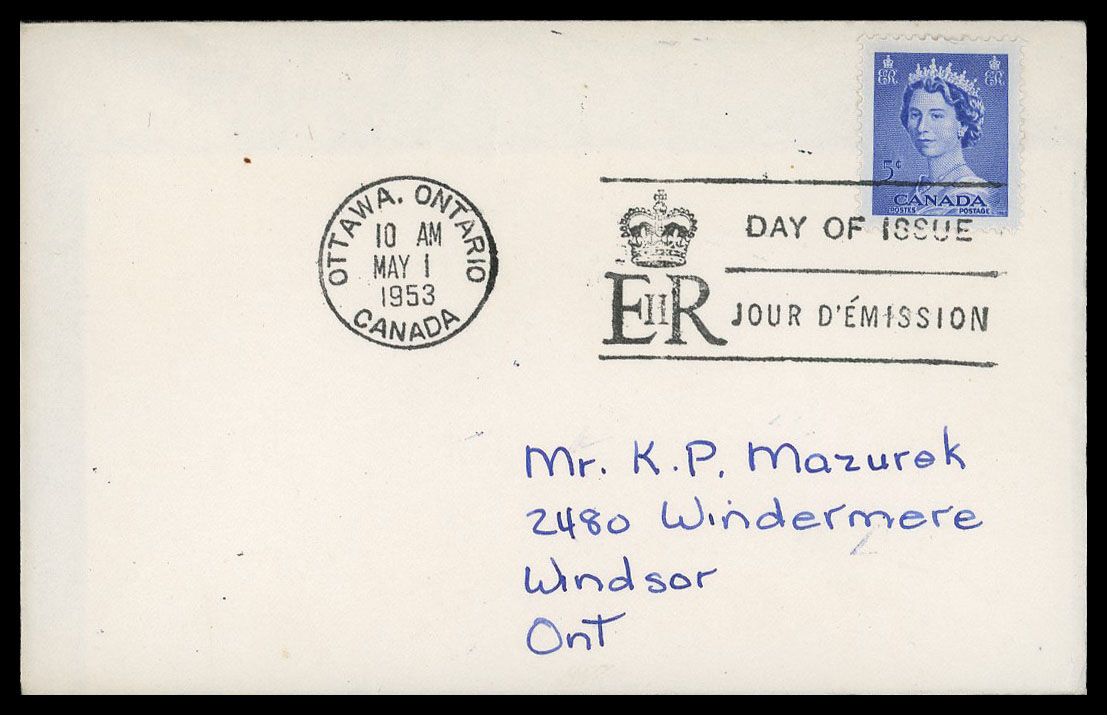 ER ER
5¢
CANADA
POSTES POSTAGE
OTTAWA, ONTARIO
10 AM
MAY 1
1953
CANADA
DAY OF ISSUE
EIIR JOUR D'ÉMISSION
Mr. K.P. Mazurek
2480 Windermere
Windsor
Ont